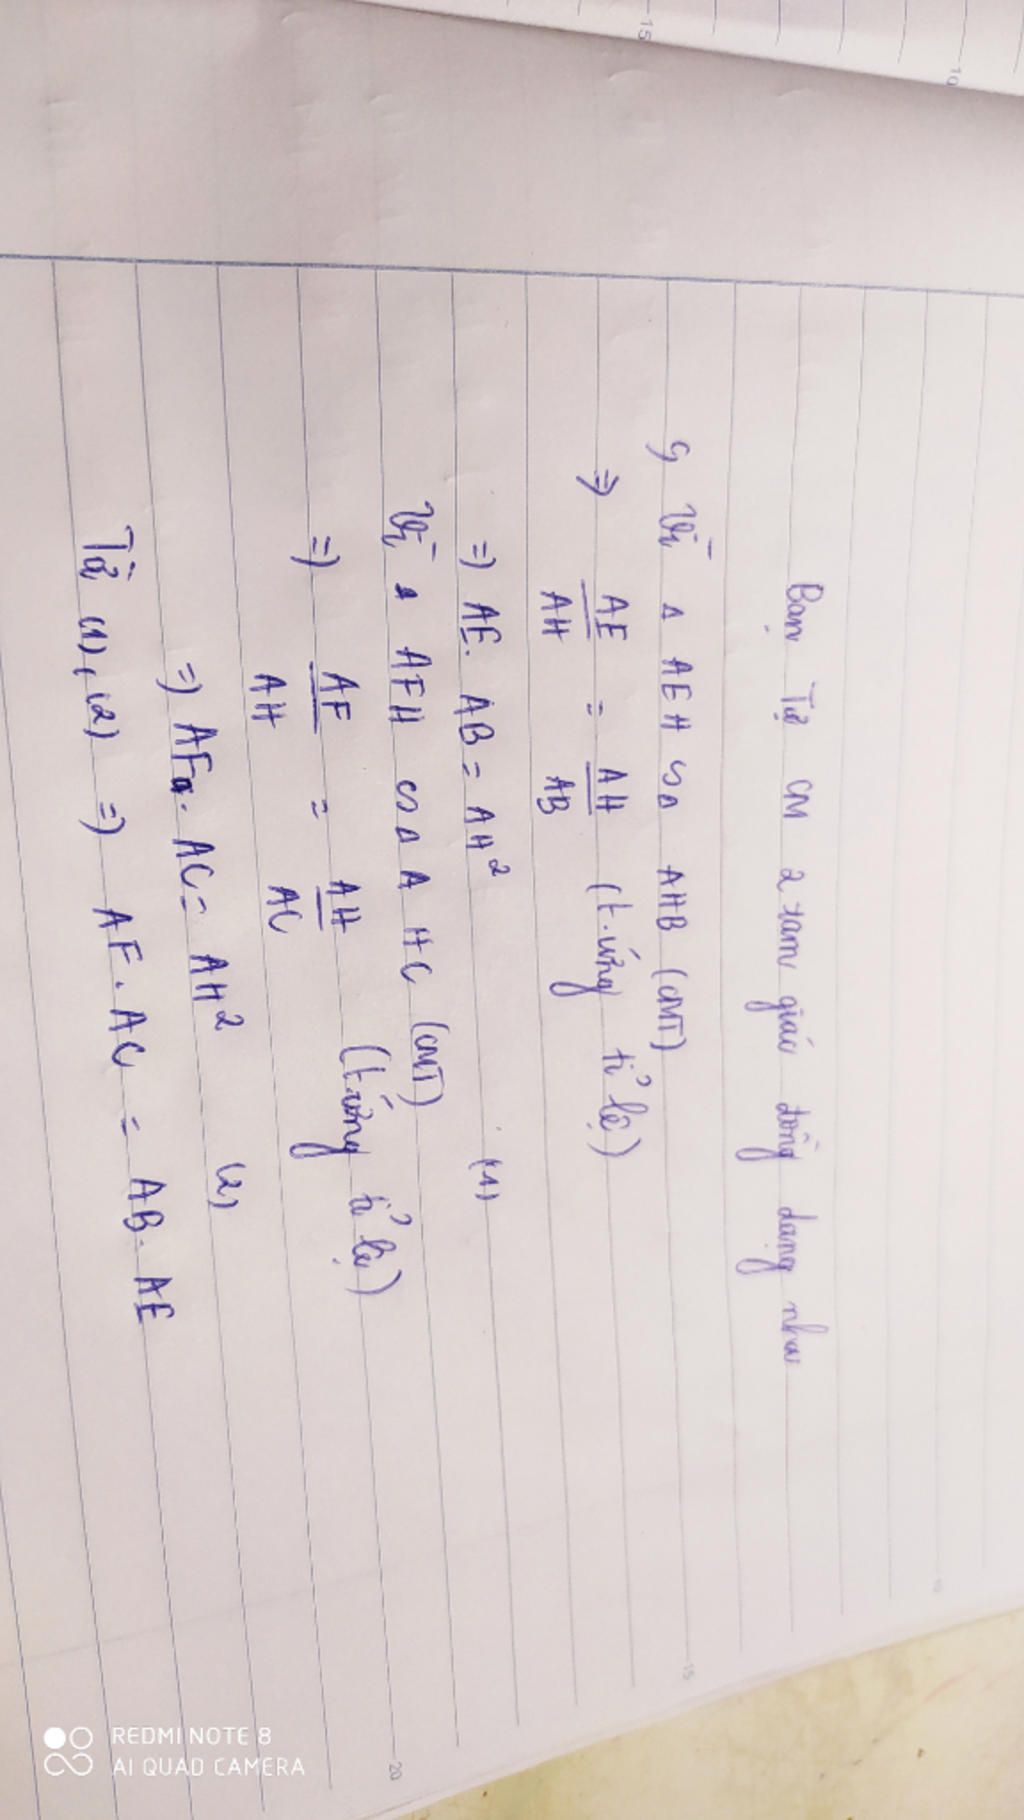 Bạn Tự CM 2 tam giác đồng dạng nha
c, Vì Δ AEH ∽ Δ AHB (CMT)
=> AE/AH = AH/AB (t.ứng tỉ lệ)
=> AE. AB = AH² (1)
Vì Δ AFH ∽ Δ AHC (CMT)
=> AF/AH = AH/AC (t.ứng tỉ lệ)
=> AF. AC = AH² (2)
Từ (1), (2) => AF. AC = AB. AE
REDMI NOTE 8
AI QUAD CAMERA
15
10
10
15
20